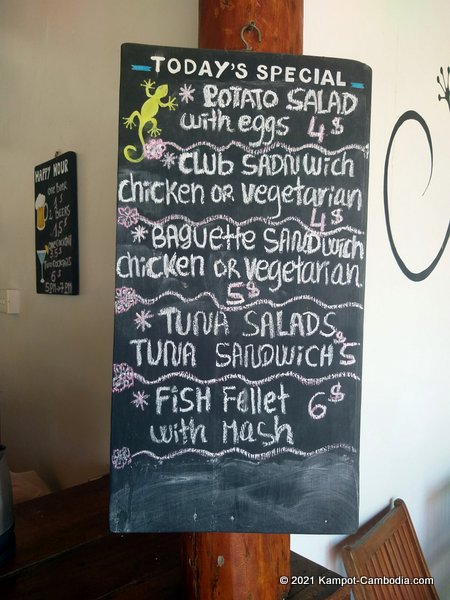 TODAY'S SPECIAL
* POTATO SALAD
with eggs 4$
* CLUB SADNWich
chicken OR vegetarian
4$
* BAGUETTE SANDWich
chicken OR vegetarian
5$
* TUNA SALADS
TUNA SANDWICH 5$
* FiSH Fellet 6$
with Mash
HAPPY HOUR
ONE BEER
1$
2 BEERS
5PM→7PM
© 2021 Kampot-Cambodia.com